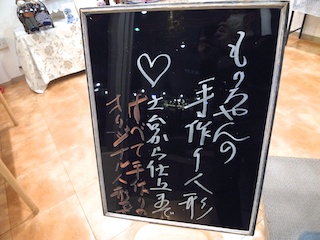 もりちゃんの
手作り人形
♡土台から仕立まで
すべて手作りの
オリジナル人形です